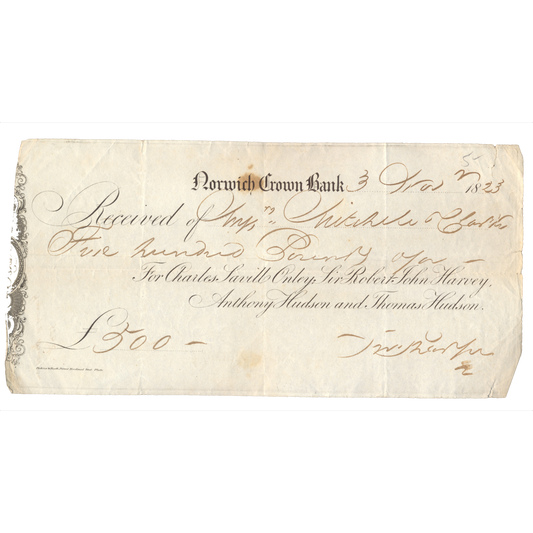 Norwich Crown Bank 3 Nov r 1823
Received of Mess rs Mitchell & Clarke
Five hundred Pounds
For Charles Savill Onley, Sir Robert John Harvey,
Anthony Hudson and Thomas Hudson.
£500 –